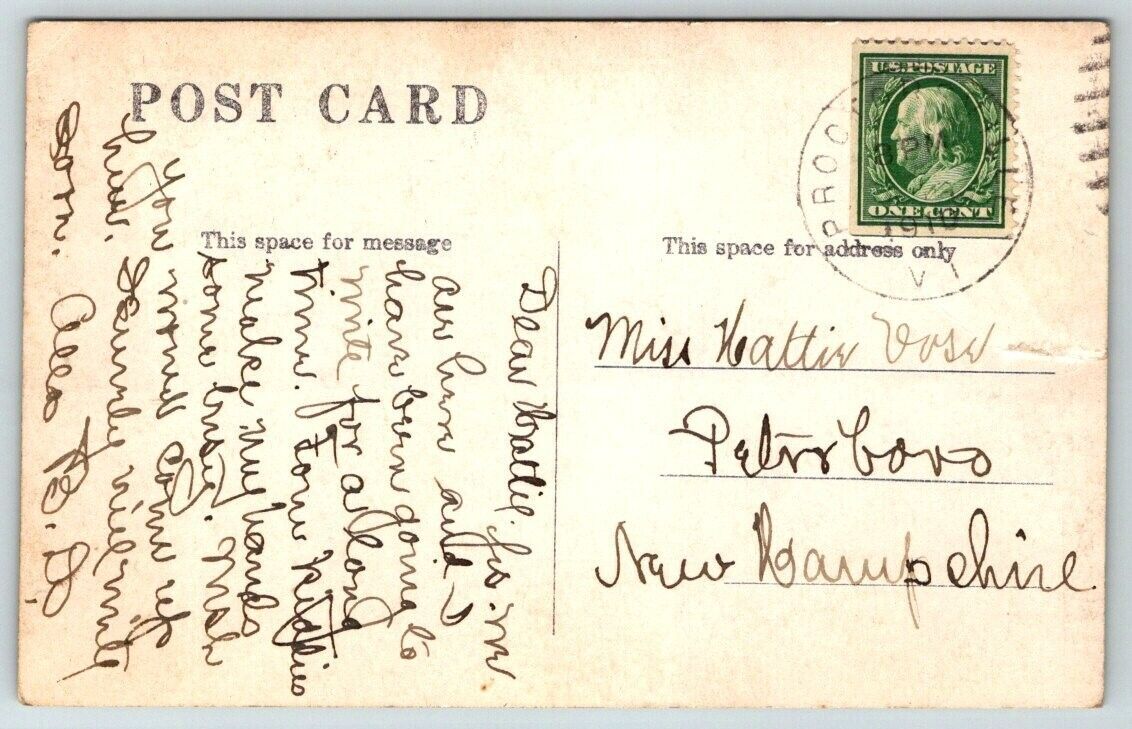 POST CARD
U.S. POSTAGE
ONE CENT
PROC
3 PM
1910
VT
This space for message
This space for address only
Dear Hattie. Yes. we
are here and I
have been going to
write for a long
time. Four kiddies
make my hands
some busy. Wish
you would come up
here. Laundry will write
soon. Alla B. D.
Miss Hattie Vose
Peterboro
New Hampshire